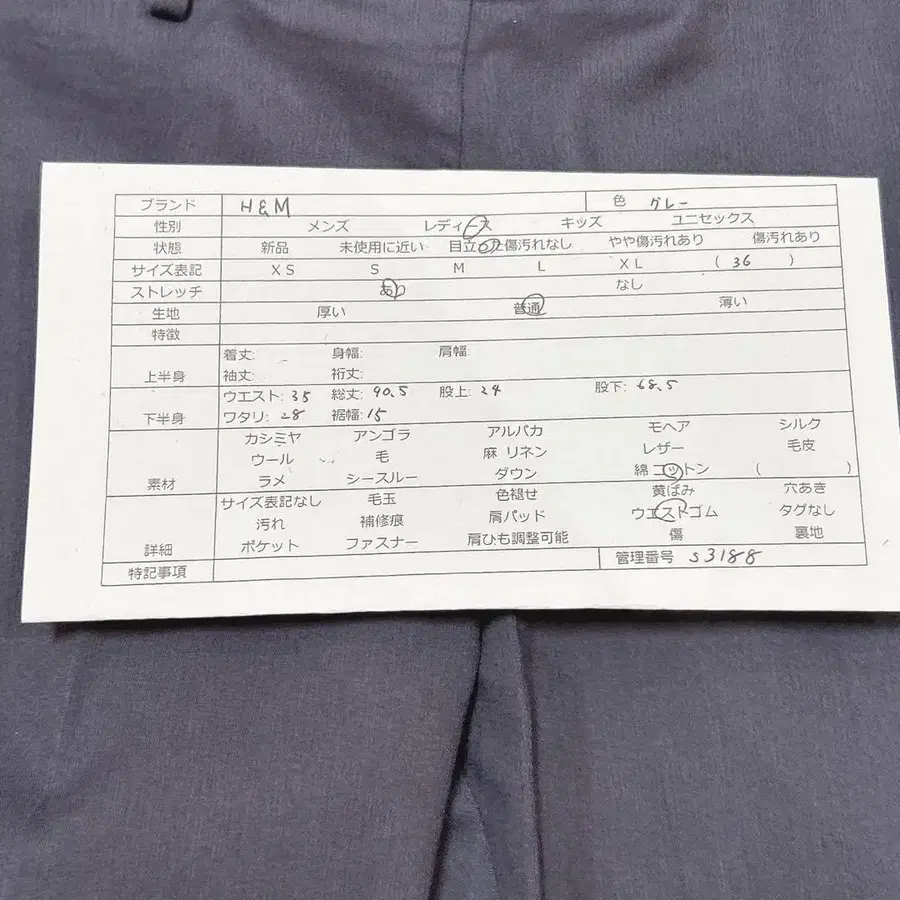 ブランド H&M 色 グレー
性別 メンズ レディース キッズ ユニセックス
状態 新品 未使用に近い 目立った傷汚れなし やや傷汚れあり 傷汚れあり
サイズ表記 XS S M L XL ( 36 )
ストレッチ あり なし
生地 厚い 普通 薄い
特徴
上半身 着丈: 身幅: 肩幅
袖丈: 裄丈:
下半身 ウエスト: 35 総丈: 90.5 股上: 24 股下: 68.5
ワタリ: 28 裾幅: 15
素材 カシミヤ アンゴラ アルパカ モヘア シルク
ウール 毛 麻 リネン レザー 毛皮
ラメ シースルー ダウン 綿 コットン ( )
詳細 サイズ表記なし 毛玉 色褪せ 黄ばみ 穴あき
汚れ 補修痕 肩パッド ウエストゴム タグなし
ポケット ファスナー 肩ひも調整可能 傷 裏地
特記事項 管理番号 S3188